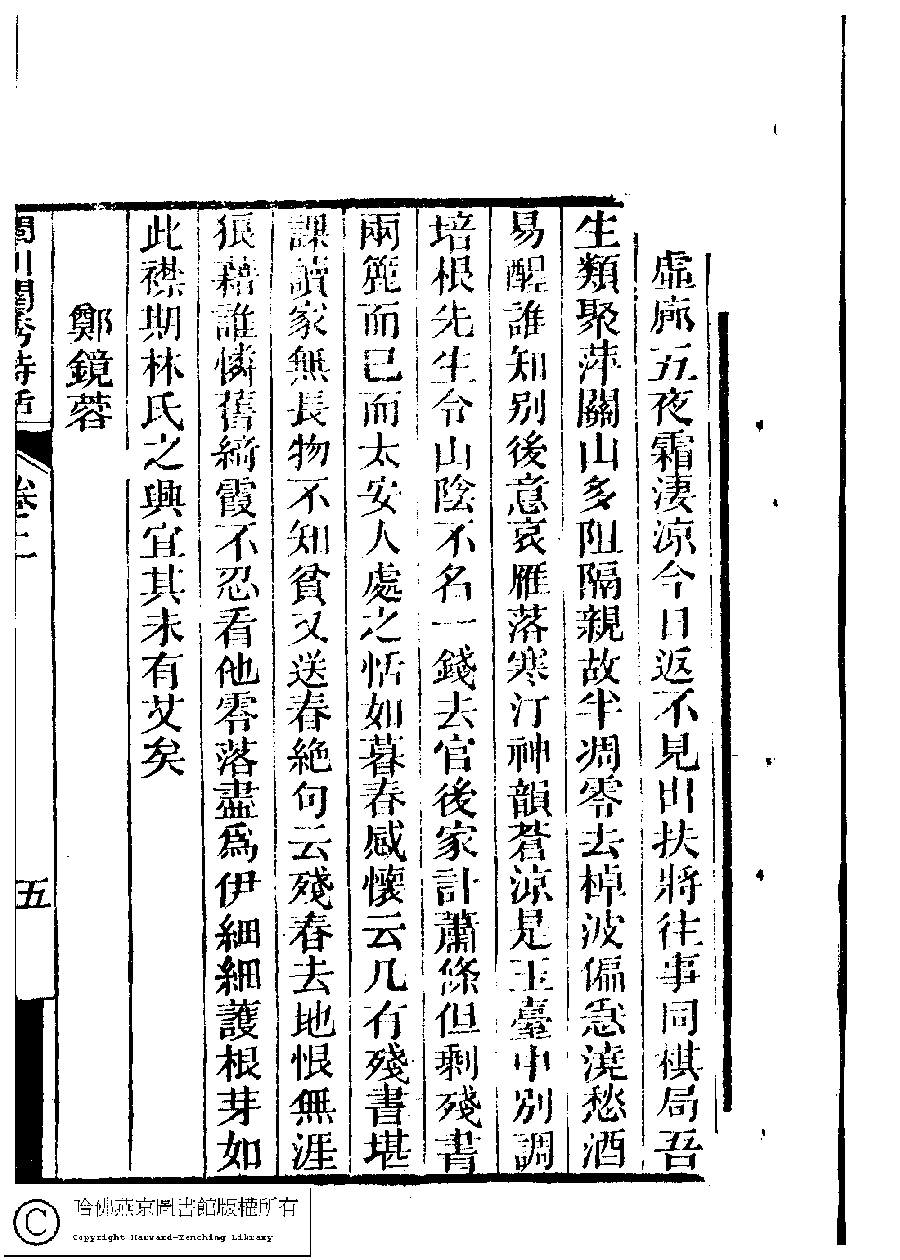 虛廊五夜霜淒涼今日返不見出扶將往事同棋局吾
生類聚萍關山多阻隔親故半凋零去棹波偏急澆愁酒
易醒誰知別後意哀雁落寒汀神韻蒼涼是玉臺中別調
培根先生令山陰不名一錢去官後家計蕭條但剩殘書
兩簏而已而太安人處之恬如暮春感懷云几有殘書堪
課讀家無長物不知貧又送春絶句云殘春去地恨無涯
狼藉誰憐舊綺霞不忍看他零落盡爲伊細細護根芽如
此襟期林氏之興宜其未有艾矣
鄭鏡蓉
閩川閨秀詩話
卷二
五
哈佛燕京圖書館版權所有
Copyright Harvard-Yenching Library